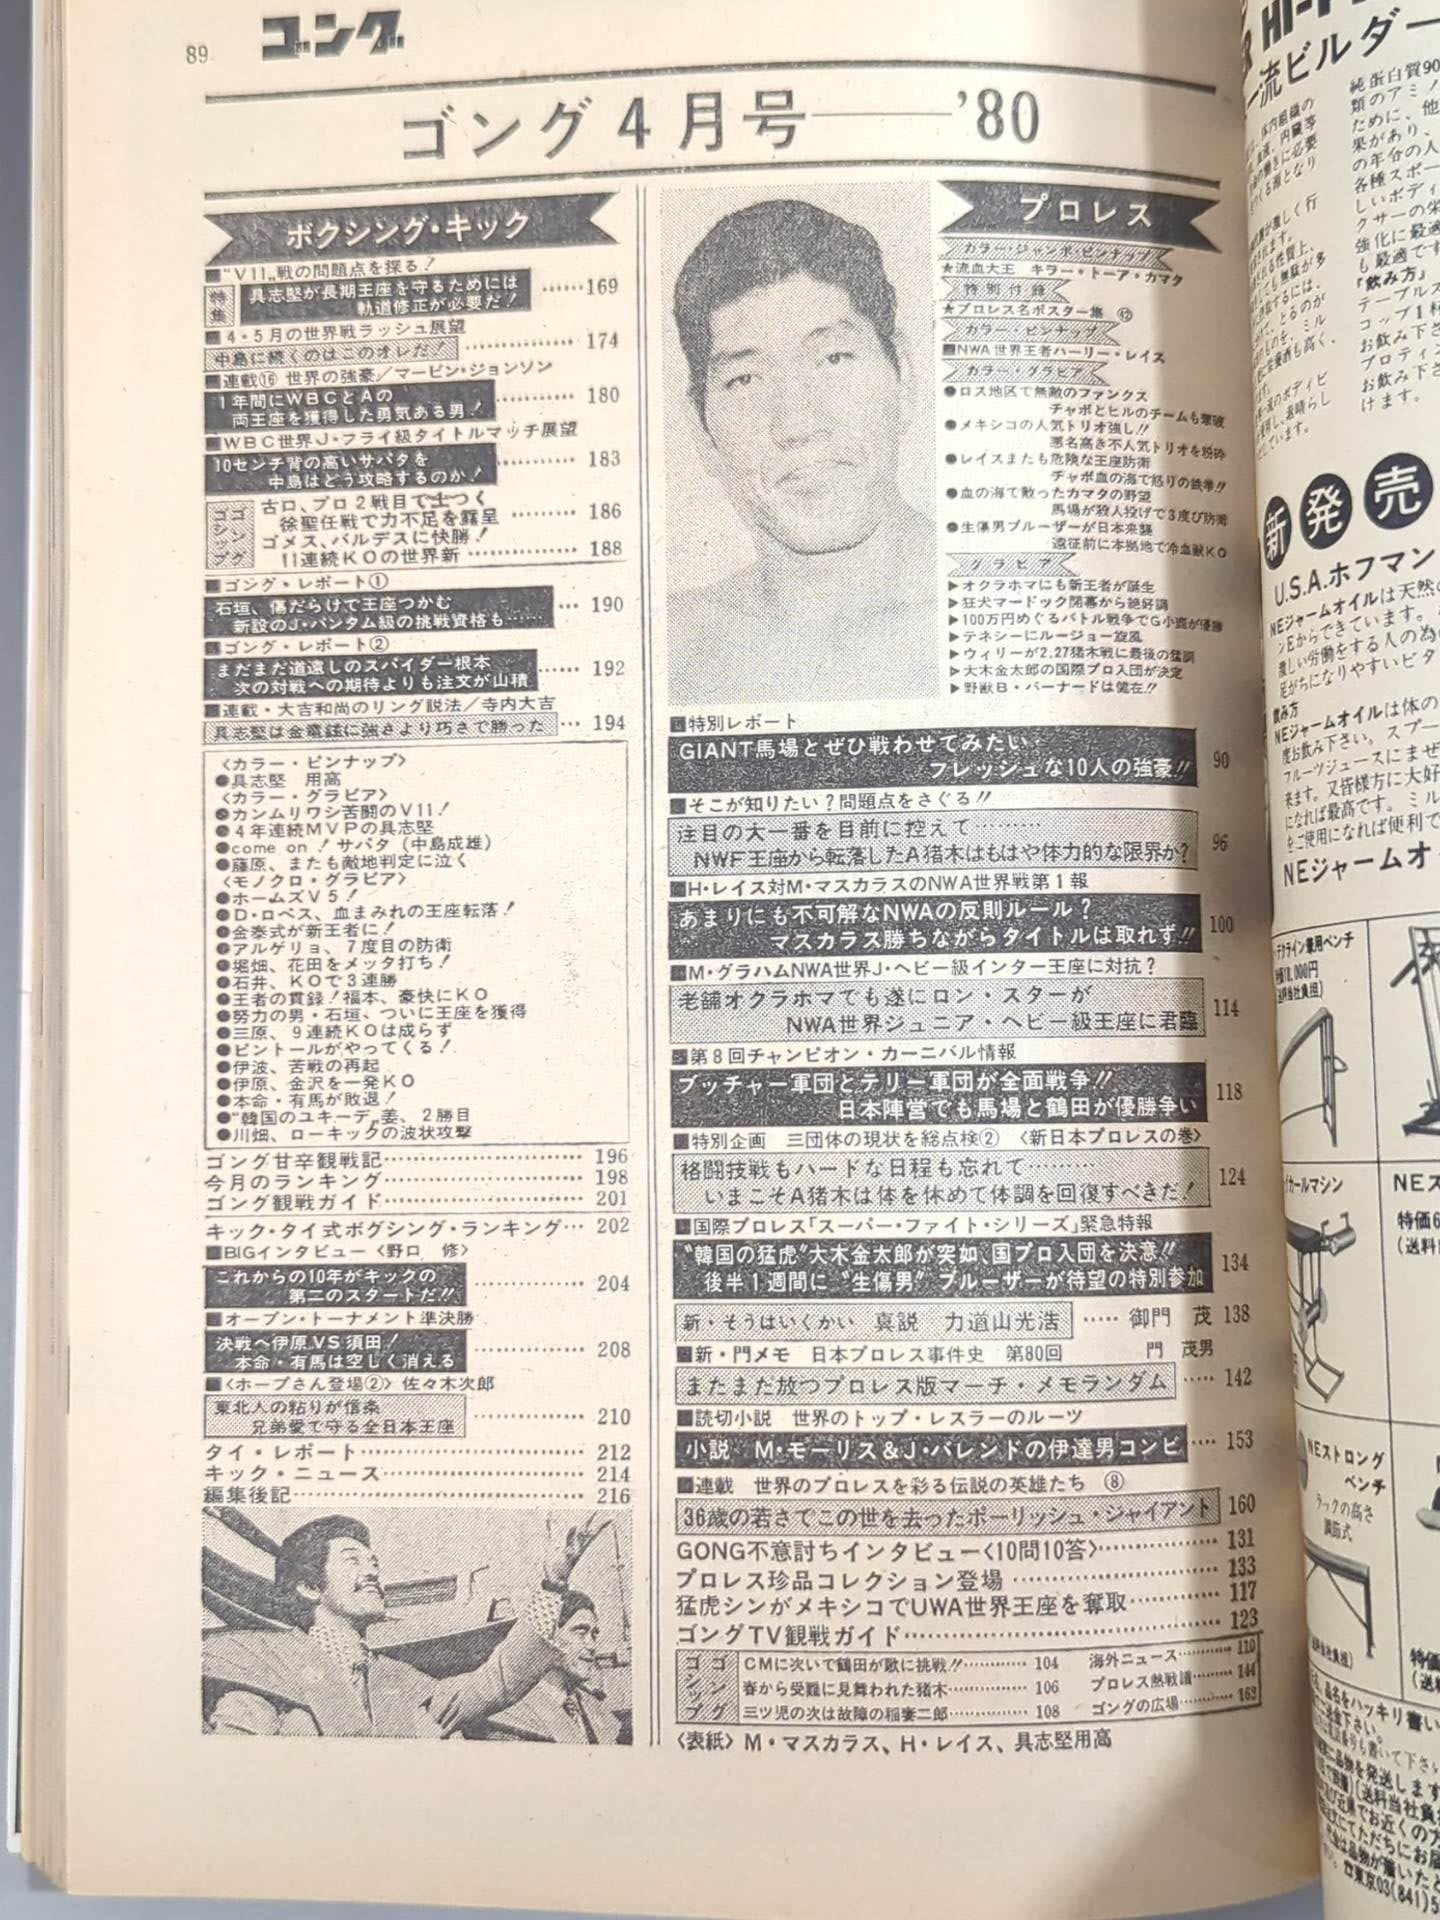 89
ゴング
ゴング4月号――'80
ボクシング・キック
■"V11„戦の問題点を探る!
特集
具志堅が長期王座を守るためには
軌道修正が必要だ! ……169
■4・5月の世界戦ラッシュ展望
中島に続くのはこのオレだ! ……………174
■連載⑯ 世界の強豪/マービン・ジョンソン
1年間にWBCとAの
両王座を獲得した勇気ある男! …………180
■WBC世界J・フライ級タイトルマッチ展望
10センチ背の高いサパタを
中島はどう攻略するのか! …………183
ゴング
ゴシップ
古口、プロ2戦目で土つく
徐聖任戦で力不足を露呈 ………186
ゴメス、バルデスに快勝!
11連続KOの世界新 ……………188
■ゴング・レポート①
石垣、傷だらけで王座つかむ
新設のJ・バンタム級の挑戦資格も…… …190
■ゴング・レポート②
まだまだ道遠しのスパイダー根本
次の対戦への期待よりも注文が山積 ……192
■連載・大吉和尚のリング説法/寺内大吉
具志堅は金竜鉉に強さより巧さで勝った …194
〈カラー・ピンナップ〉
●具志堅 用高
〈カラー・グラビア〉
●カンムリワシ苦闘のV11!
●4年連続MVPの具志堅
●come on!サパタ(中島成雄)
●藤原、またも敵地判定に泣く
〈モノクロ・グラビア〉
●ホームズV5!
●D・ロペス、血まみれの王座転落!
●金泰式が新王者に!
●アルゲリョ、7度目の防衛
●堀畑、花田をメッタ打ち!
●石井、KOで3連勝
●王者の貫録!福本、豪快にKO
●努力の男・石垣、ついに王座を獲得
●三原、9連続KOは成らず
●ピントールがやってくる!
●伊波、苦戦の再起
●伊原、金沢を一発KO
●本命・有馬が敗退!
●"韓国のユキーデ„姜、2勝目
●川畑、ローキックの波状攻撃
ゴング甘辛観戦記……………………196
今月のランキング……………………198
ゴング観戦ガイド……………………201
キック・タイ式ボグシング・ランキング…202
■BIGインタビュー〈野口 修〉
これからの10年がキックの
第二のスタートだ!! ……………204
■オープン・トーナメント準決勝
決戦へ伊原VS須田!
本命・有馬は空しく消える ……………208
■〈ホープさん登場②〉佐々木次郎
東北人の粘りが信条
兄弟愛で守る全日本王座 ……………210
タイ・レポート…………………………212
キック・ニュース………………………214
編集後記…………………………………216
プロレス
カラー・ジャンボ・ピンナップ
★流血大王 キラー・トーア・カマタ
特別付録
★プロレス名ポスター集 ⑫
カラー・ピンナップ
■NWA世界王者ハーリー・レイス
カラー・グラビア
●ロス地区で無敵のファンクス
チャボとヒルのチームも撃破
●メキシコの人気トリオ強し!!
悪名高き不人気トリオを粉砕
●レイスまたも危険な王座防衛
チャボ血の海で怒りの鉄拳!!
●血の海で散ったカマタの野望
馬場が殺人投げで3度び防衛
●生傷男ブルーザーが日本来襲
遠征前に本拠地で冷血獣KO
グラビア
▶オクラホマにも新王者が誕生
▶狂犬マードック開幕から絶好調
▶100万円めぐるバトル戦争でG小鹿が優勝
▶テネシーにルージョー旋風
▶ウィリーが2.27猪木戦に最後の猛調
▶大木金太郎の国際プロ入団が決定
▶野獣B・バーナードは健在!!
■特別レポート
GIANT馬場とぜひ戦わせてみたい
フレッシュな10人の強豪!! 90
■そこが知りたい?問題点をさぐる!!
注目の大一番を目前に控えて………
NWF王座から転落したA猪木はもはや体力的な限界か? 96
■H・レイス対M・マスカラスのNWA世界戦第1報
あまりにも不可解なNWAの反則ルール?
マスカラス勝ちながらタイトルは取れず!! 100
■M・グラハムNWA世界J・ヘビー級インター王座に対抗?
老舗オクラホマでも遂にロン・スターが
NWA世界ジュニア・ヘビー級王座に君臨 114
■第8回チャンピオン・カーニバル情報
ブッチャー軍団とテリー軍団が全面戦争!!
日本陣営でも馬場と鶴田が優勝争い 118
■特別企画 三団体の現状を総点検② 〈新日本プロレスの巻〉
格闘技戦もハードな日程も忘れて………
いまこそA猪木は体を休めて体調を回復すべきだ! 124
■国際プロレス「スーパー・ファイト・シリーズ」緊急特報
"韓国の猛虎"大木金太郎が突如、国プロ入団を決意!!
後半1週間に"生傷男"ブルーザーが待望の特別参加 134
新・そうはいくかい 真説 力道山光浩 …… 御門 茂 138
■新・門メモ 日本プロレス事件史 第80回 門 茂男
またまた放つプロレス版マーチ・メモランダム ……142
■読切小説 世界のトップ・レスラーのルーツ
小説 M・モーリス&J・バレンドの伊達男コンビ ……153
■連載 世界のプロレスを彩る伝説の英雄たち ⑧
36歳の若さでこの世を去ったポーリッシュ・ジャイアント 160
GONG不意討ちインタビュー〈10問10答〉……………131
プロレス珍品コレクション登場 ……………………133
猛虎シンがメキシコでUWA世界王座を奪取…………117
ゴングTV観戦ガイド………………………………123
ゴング
ゴシップ
CMに次いで鶴田が歌に挑戦!!…………104
春から受難に見舞われた猪木……………106
三ツ児の次は故障の稲妻二郎……………108
海外ニュース…………110
プロレス熱戦譜………144
ゴングの広場…………163
〈表紙〉M・マスカラス、H・レイス、具志堅用高
一流ビルダー
新発売
U.S.A.ホフマン
NEジャームオイルは天然の
『飲み方』
NEジャームオイルは体の
NEジャームオイ
デクライン兼用ベンチ
NEストロング
ベンチ
ラックの高さ
調節式